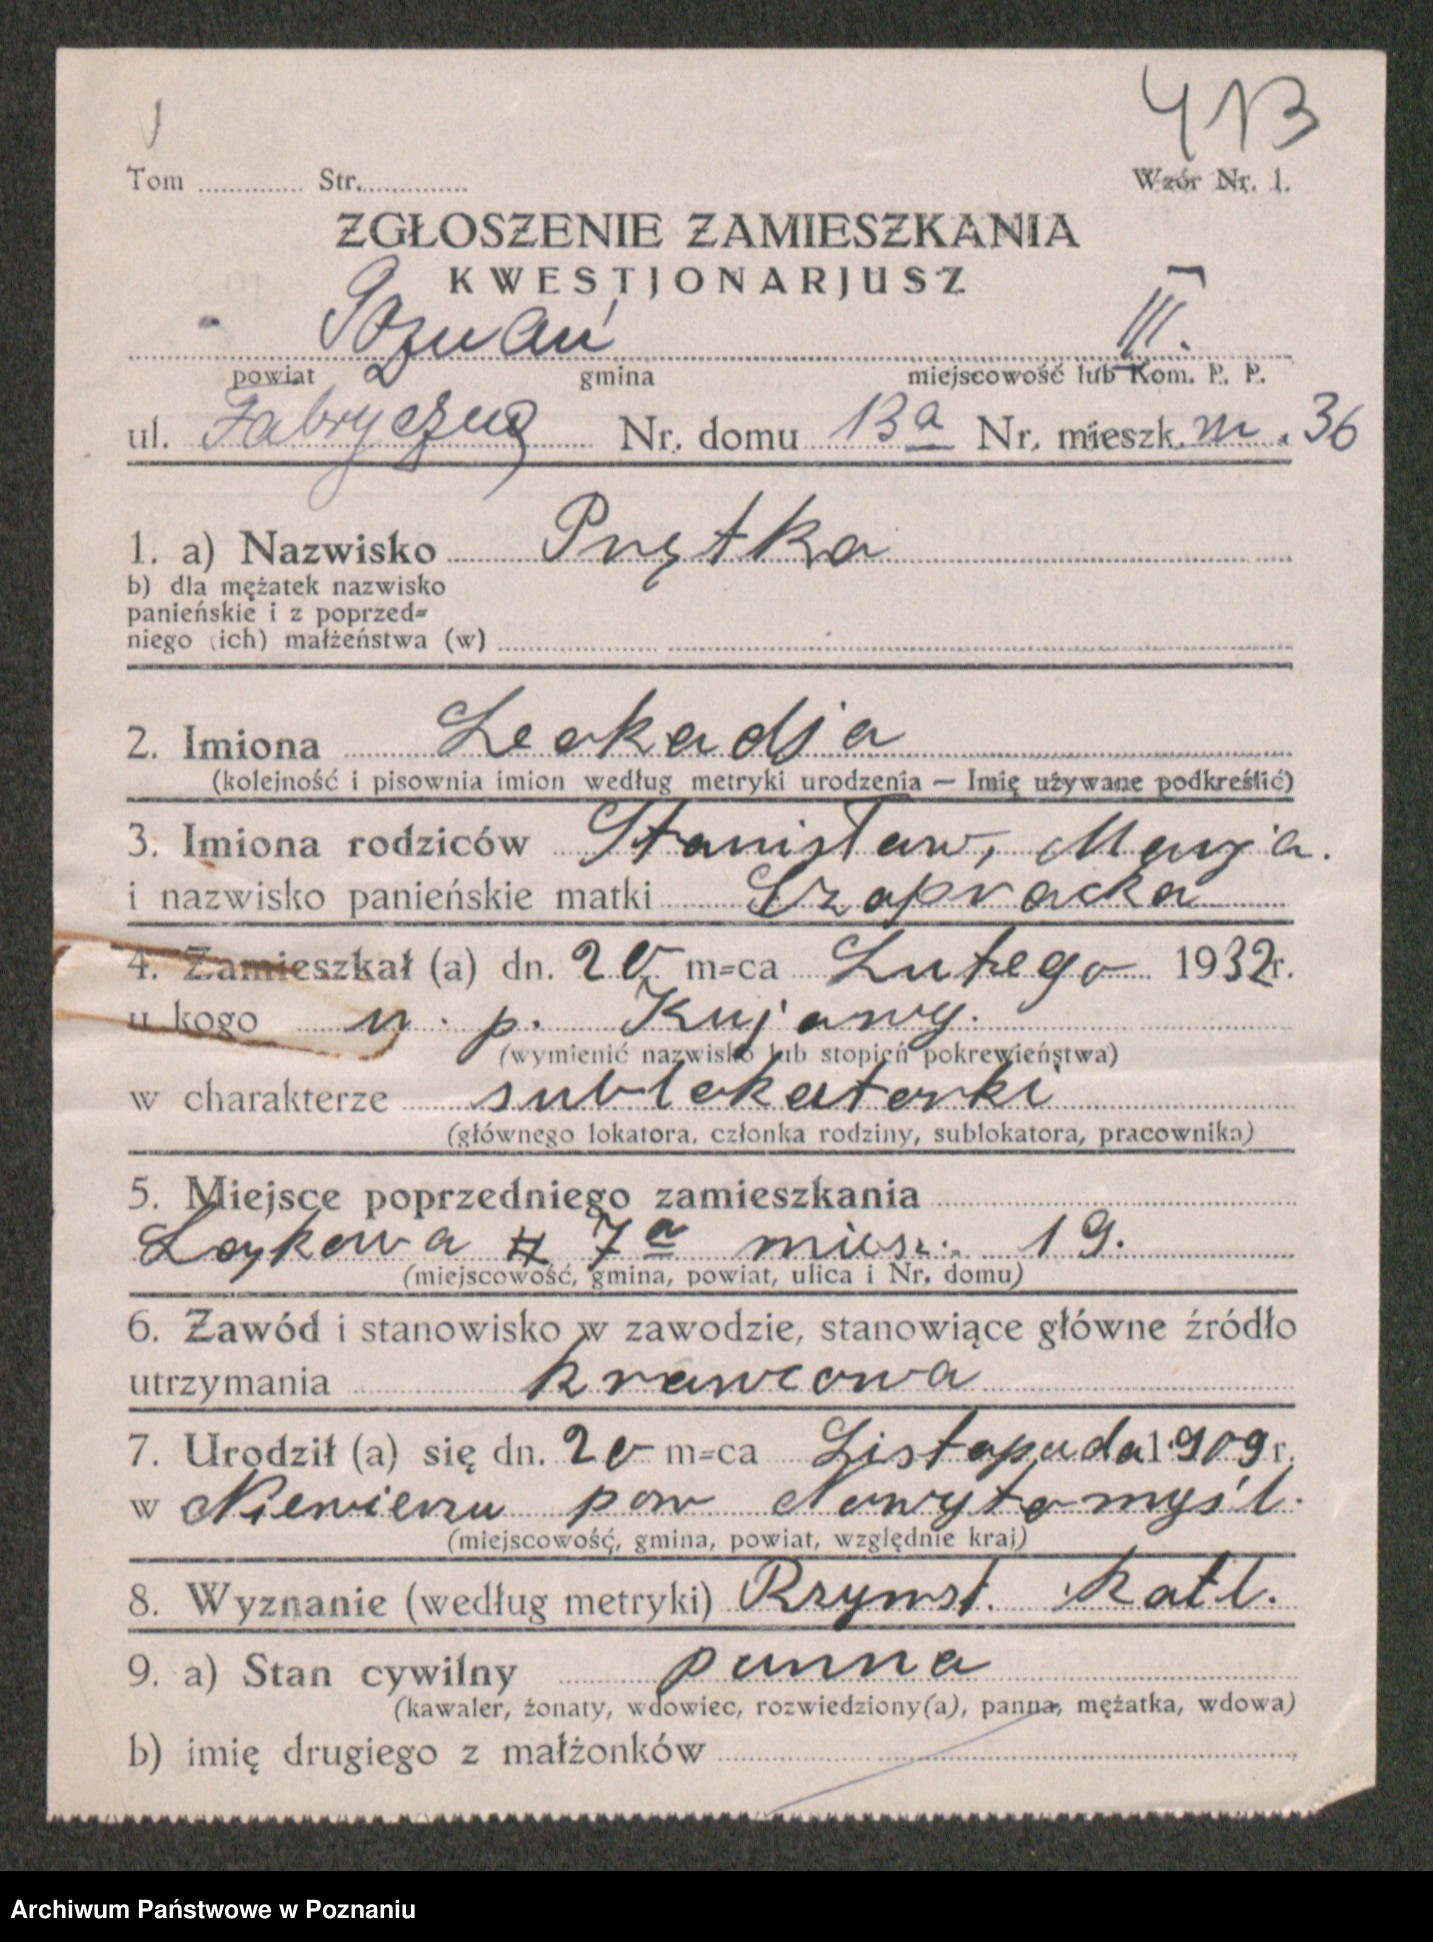 413
Tom ............. Str...............
Wzór Nr. 1.
ZGŁOSZENIE ZAMIESZKANIA
KWESTJONARJUSZ
Poznań III.
powiat gmina miejscowość lub Kom. P. P.
ul. Fabryczna Nr. domu 13a Nr. mieszk. m. 36
1. a) Nazwisko Prętka
b) dla mężatek nazwisko
panieńskie i z poprzed=
niego (ich) małżeństwa (w)
2. Imiona Leokadja
(kolejność i pisownia imion według metryki urodzenia — Imię używane podkreślić)
3. Imiona rodziców Stanisław, Marja.
i nazwisko panieńskie matki
4. Zamieszkał (a) dn. 20 m=ca Lutego 1932r.
u kogo u. p. Kujawy.
(wymienić nazwisko lub stopień pokrewieństwa)
w charakterze sublokatorki
(głównego lokatora, członka rodziny, sublokatora, pracownika)
5. Miejsce poprzedniego zamieszkania
7a miesz. 19.
(miejscowość, gmina, powiat, ulica i Nr. domu)
6. Zawód i stanowisko w zawodzie, stanowiące główne źródło
utrzymania krawcowa
7. Urodził (a) się dn. 20 m=ca Listopada 1909 r.
w Niewierzu pow Nowytomyśl.
(miejscowość, gmina, powiat, względnie kraj)
8. Wyznanie (według metryki) Rzymst. Katl.
9. a) Stan cywilny panna
(kawaler, żonaty, wdowiec, rozwiedziony(a), panna, mężatka, wdowa)
b) imię drugiego z małżonków
Archiwum Państwowe w Poznaniu